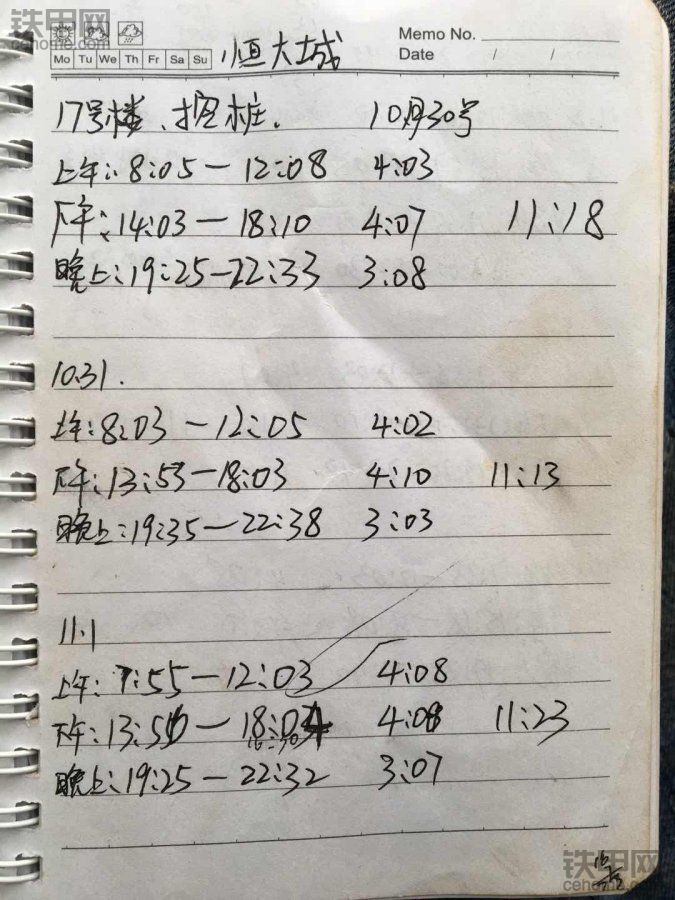 铁甲网
cehome.com
Memo No.
Mo Tu We Th Fr Sa Su
Date / /
恒大城
17号楼、挖桩. 10月30号
上午:8:05—12:08 4:03
下午:14:03—18:10 4:07 11:18
晚上:19:25—22:33 3:08
10.31.
上午:8:03—12:05 4:02
下午:13:53—18:03 4:10 11:13
晚上:19:35—22:38 3:03
11.1
上午:7:55—12:03 4:08
下午:13:5 — 18:04 4:08 11:23
晚上:19:25—22:32 3:07
铁甲网
cehome.com